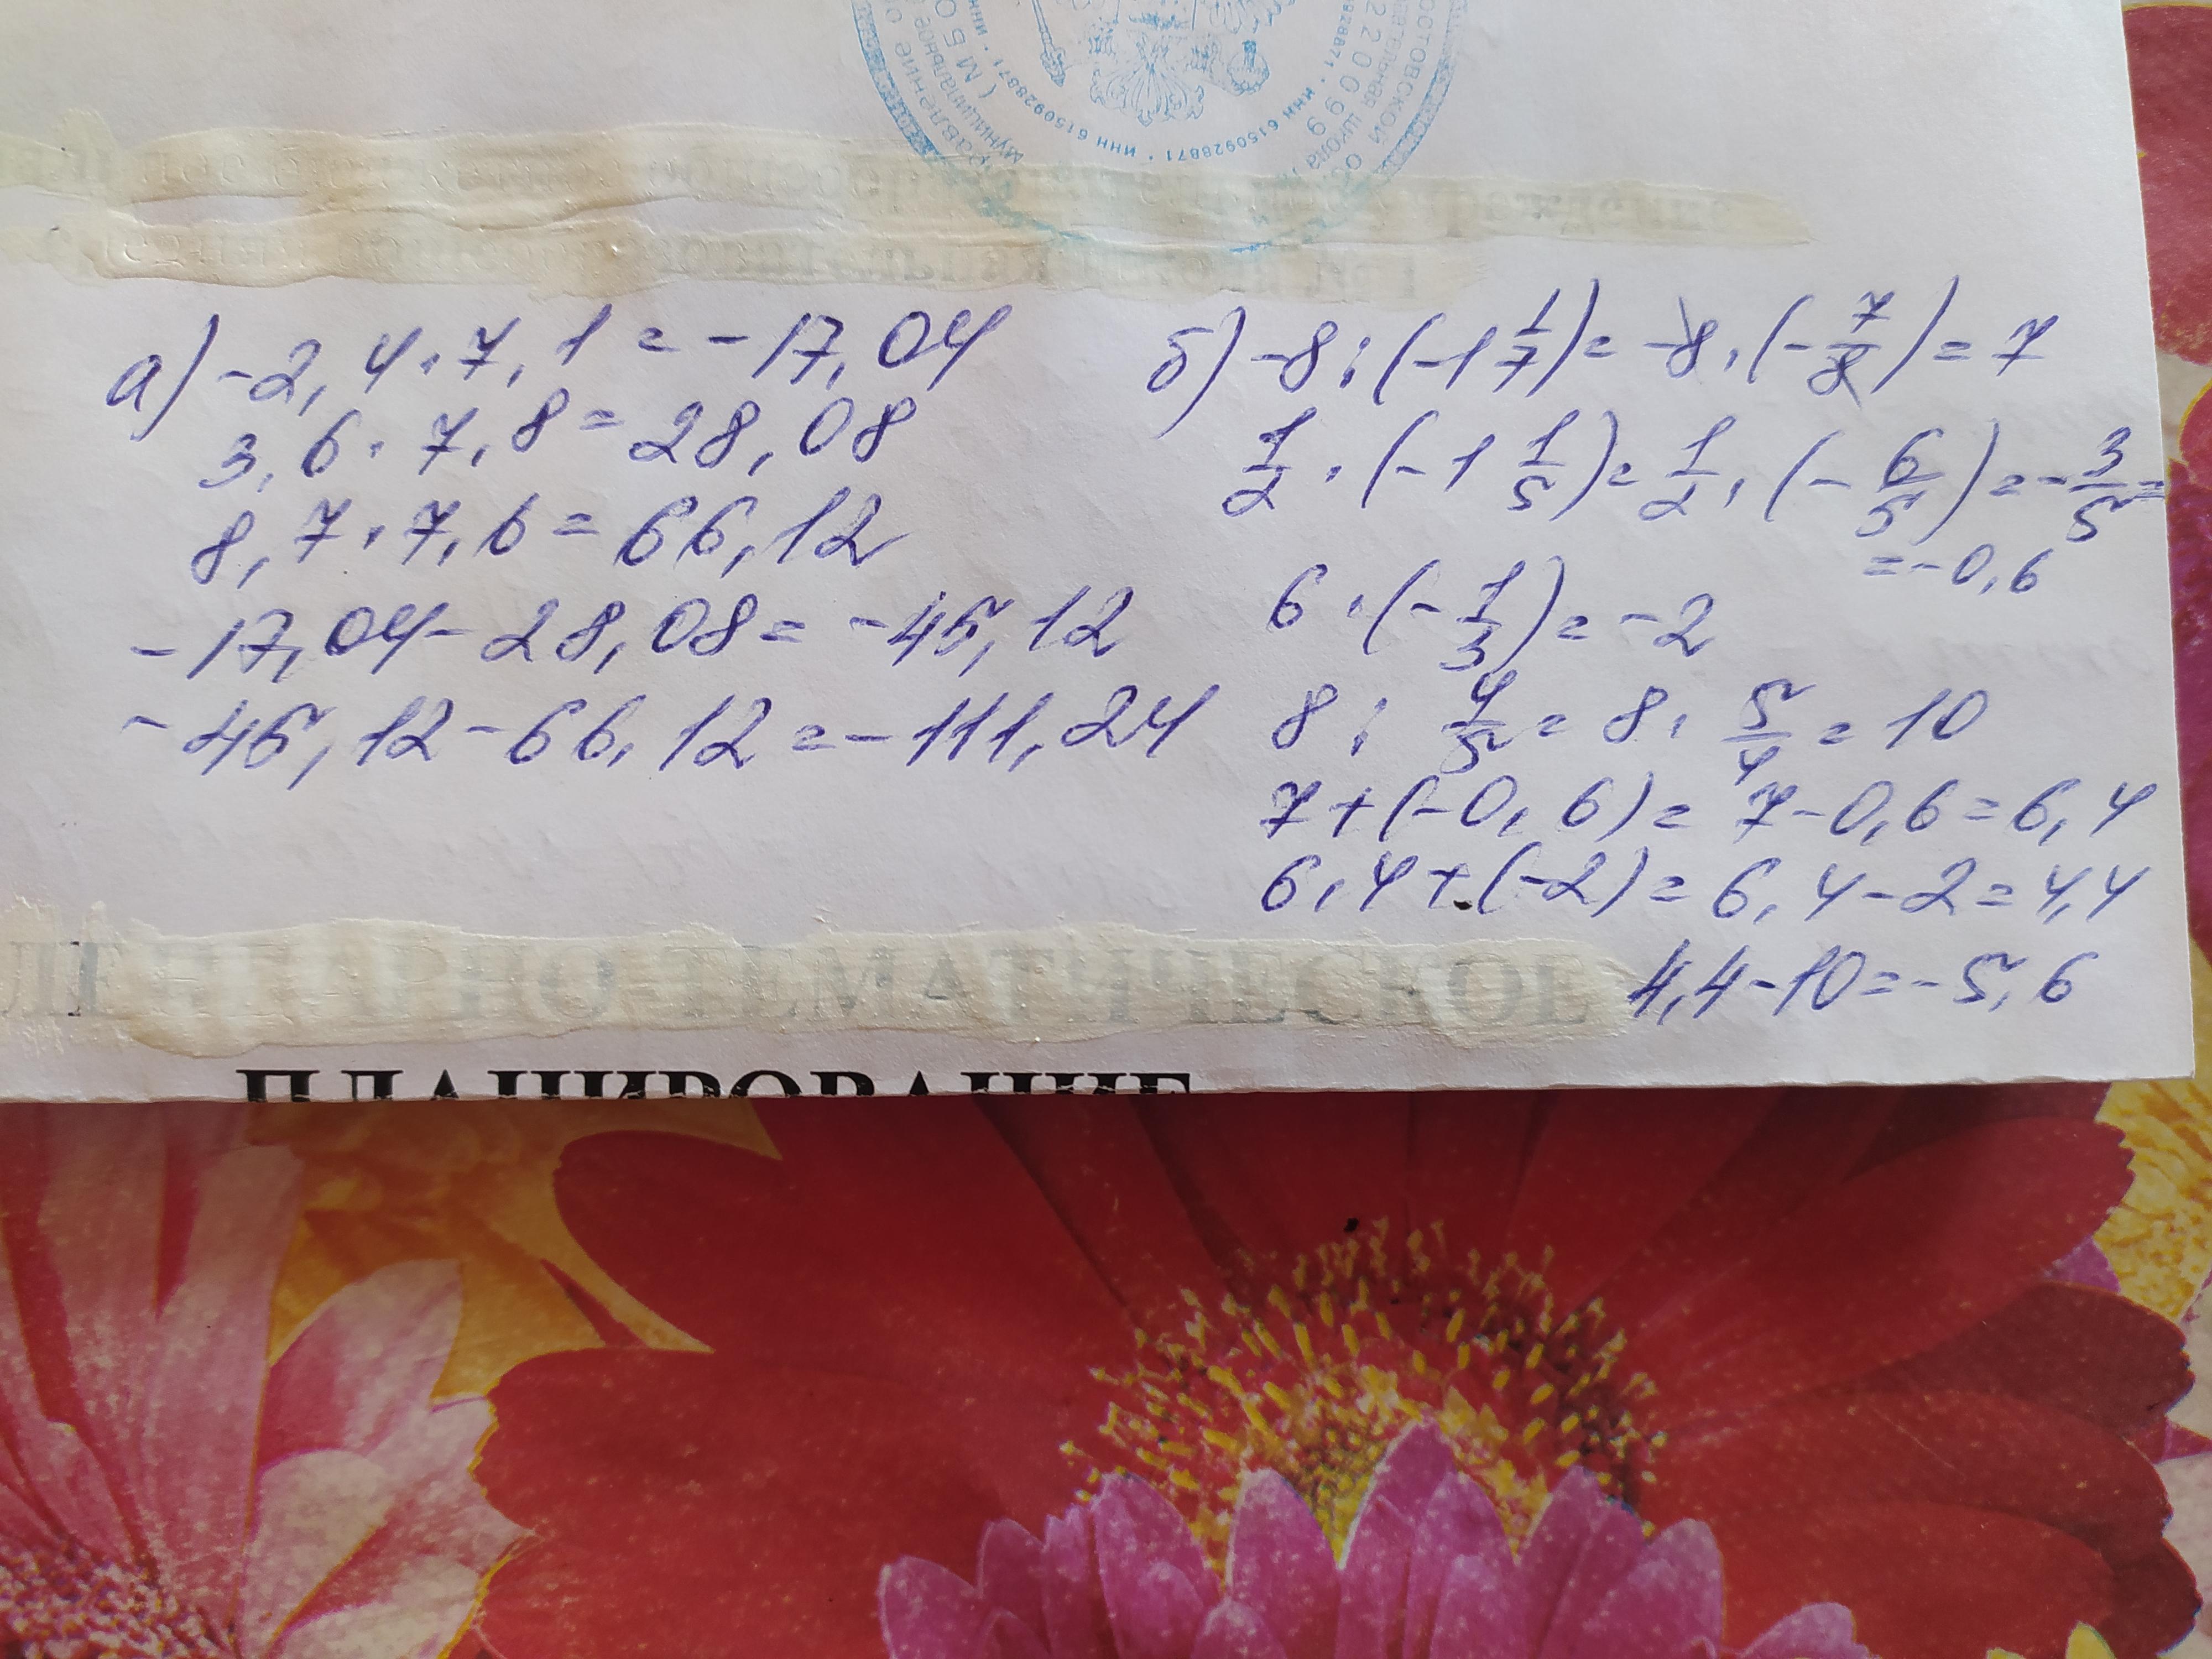 РОСТОВСКОЙ
ИНН 6150928871 • ИНН 6150928871 • ИНН
а) -2,4 · 7,1 = -17,04
3,6 · 7,8 = 28,08
8,7 · 7,6 = 66,12
-17,04 - 28,08 = -45,12
-45,12 - 66,12 = -111,24
б) -8 : (-1 1/7) = -8 · (-7/8) = 7
1/2 · (-1 1/5) = 1/2 · (-6/5) = -3/5 =
= -0,6
6 · (-1/3) = -2
8 : 4/5 = 8 · 5/4 = 10
7 + (-0,6) = 7 - 0,6 = 6,4
6,4 + (-2) = 6,4 - 2 = 4,4
4,4 - 10 = -5,6
ЛЕНДАРНО-ТЕМАТИЧЕСКОЕ
ПЛАНИРОВАНИЕ